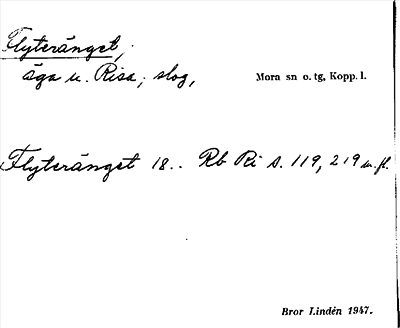 Flyteränget,
äga u. Risa; slog,
Mora sn o. tg, Kopp. l.
Flyteränget 18.. Rb Ri s. 119, 219 m. fl.
Bror Lindén 1947.